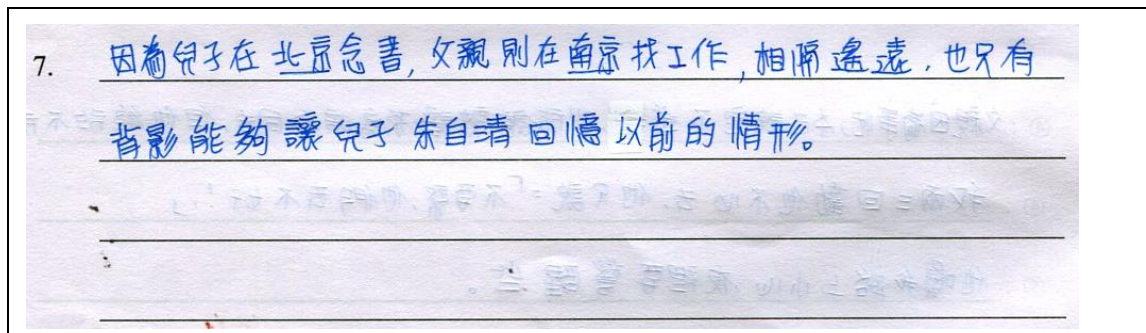 7. 因為兒子在北京念書，父親則在南京找工作，相隔遙遠，也只有
背影能夠讓兒子朱自清回憶以前的情形。